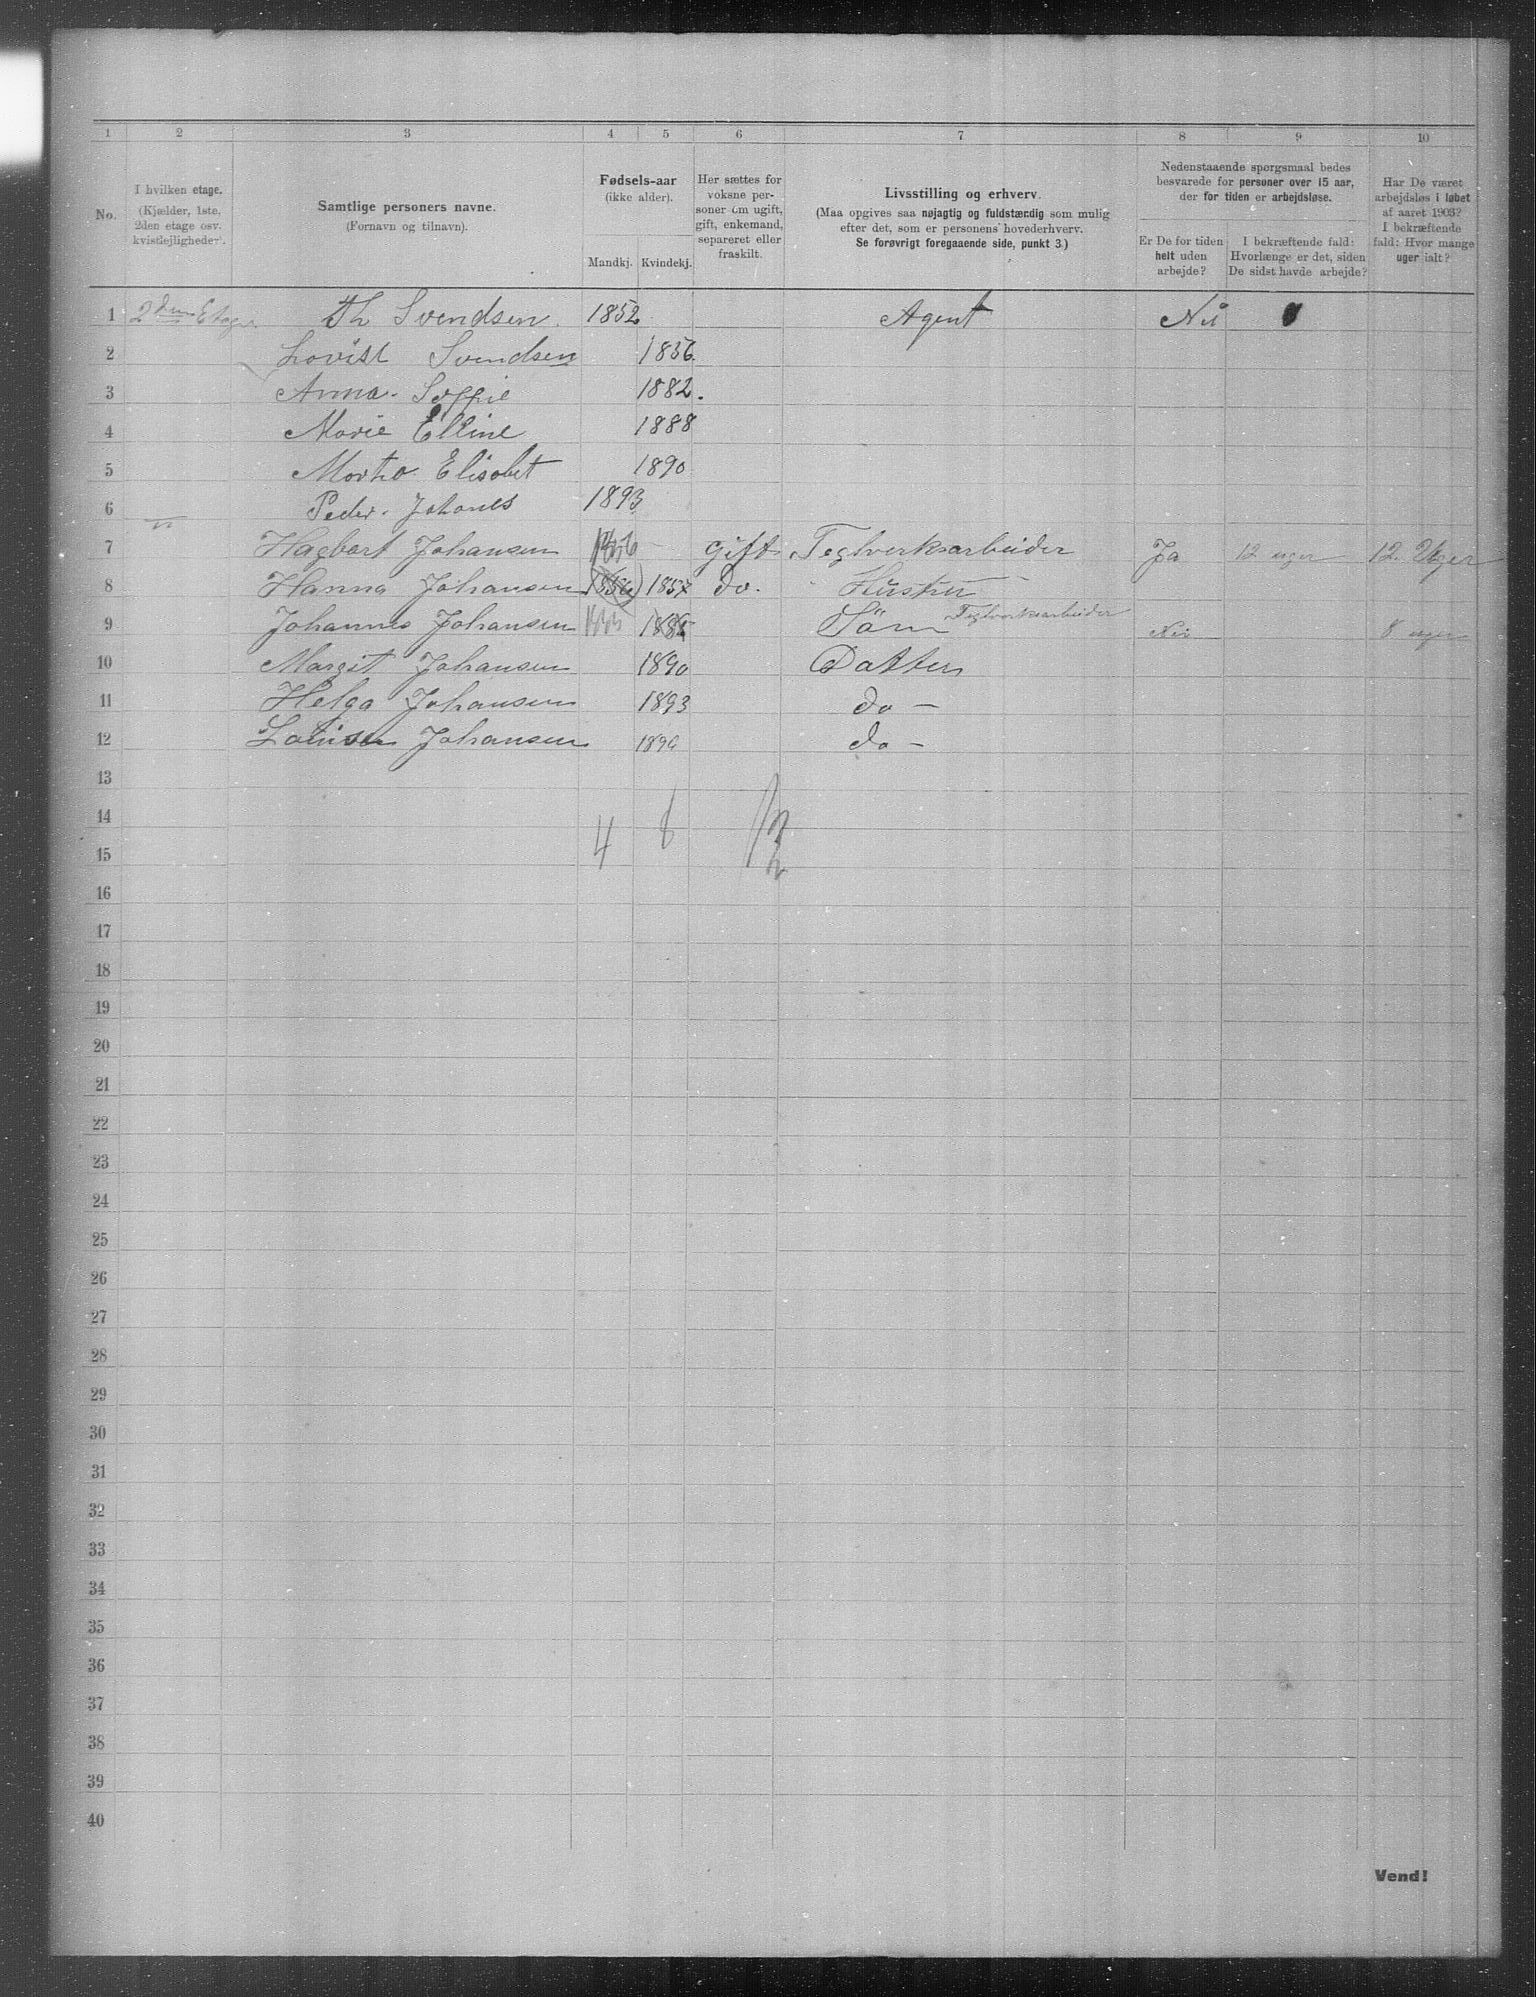 1 2 3 4 5 6 7 8 9 10
No.
I hvilken etage.
(Kjælder, 1ste,
2den etage osv.
kvistlejligheder.
Samtlige personers navne.
(Fornavn og tilnavn).
Fødsels-aar
(ikke alder).
Mandkj. Kvindekj.
Her sættes for
voksne per-
soner om ugift,
gift, enkemand,
separeret eller
fraskilt.
Livsstilling og erhverv.
(Maa opgives saa nøjagtig og fuldstændig som mulig
efter det, som er personens hovederhverv.
Se forøvrigt foregaaende side, punkt 3.)
Nedenstaaende spørgsmaal bedes
besvarede for personer over 15 aar,
der for tiden er arbejdsløse.
Er De for tiden
helt uden
arbejde?
I bekræftende fald:
Hvorlænge er det, siden
De sidst havde arbejde?
Har De været
arbejdsløs i løbet
af aaret 1903?
I bekræftende
fald: Hvor mange
uger ialt?
1 2den Etage Th Svendsen. 1852 Agent Nei
2 Lovise Svendsen 1856
3 Anna. Soffie 1882.
4 Marie Elline 1888
5 Martha Elisabet 1890
6 Peder. Johanes 1893
7 Hagbart Johansen 1856 Gift Teglverksarbeider Ja 12 uger 12. Uger
8 Hanna Johansen 1856 1857 Do. Hustru
9 Johannes Johansen 1885 Søn Teglverksarbeider Nei 8 uger
10 Margit Johansen 1890 Datter
11 Helga Johansen 1893 do -
12 Louise Johansen 1896 do -
13
14 4 8
15
16
17
18
19
20
21
22
23
24
25
26
27
28
29
30
31
32
33
34
35
36
37
38
39
40
Vend!